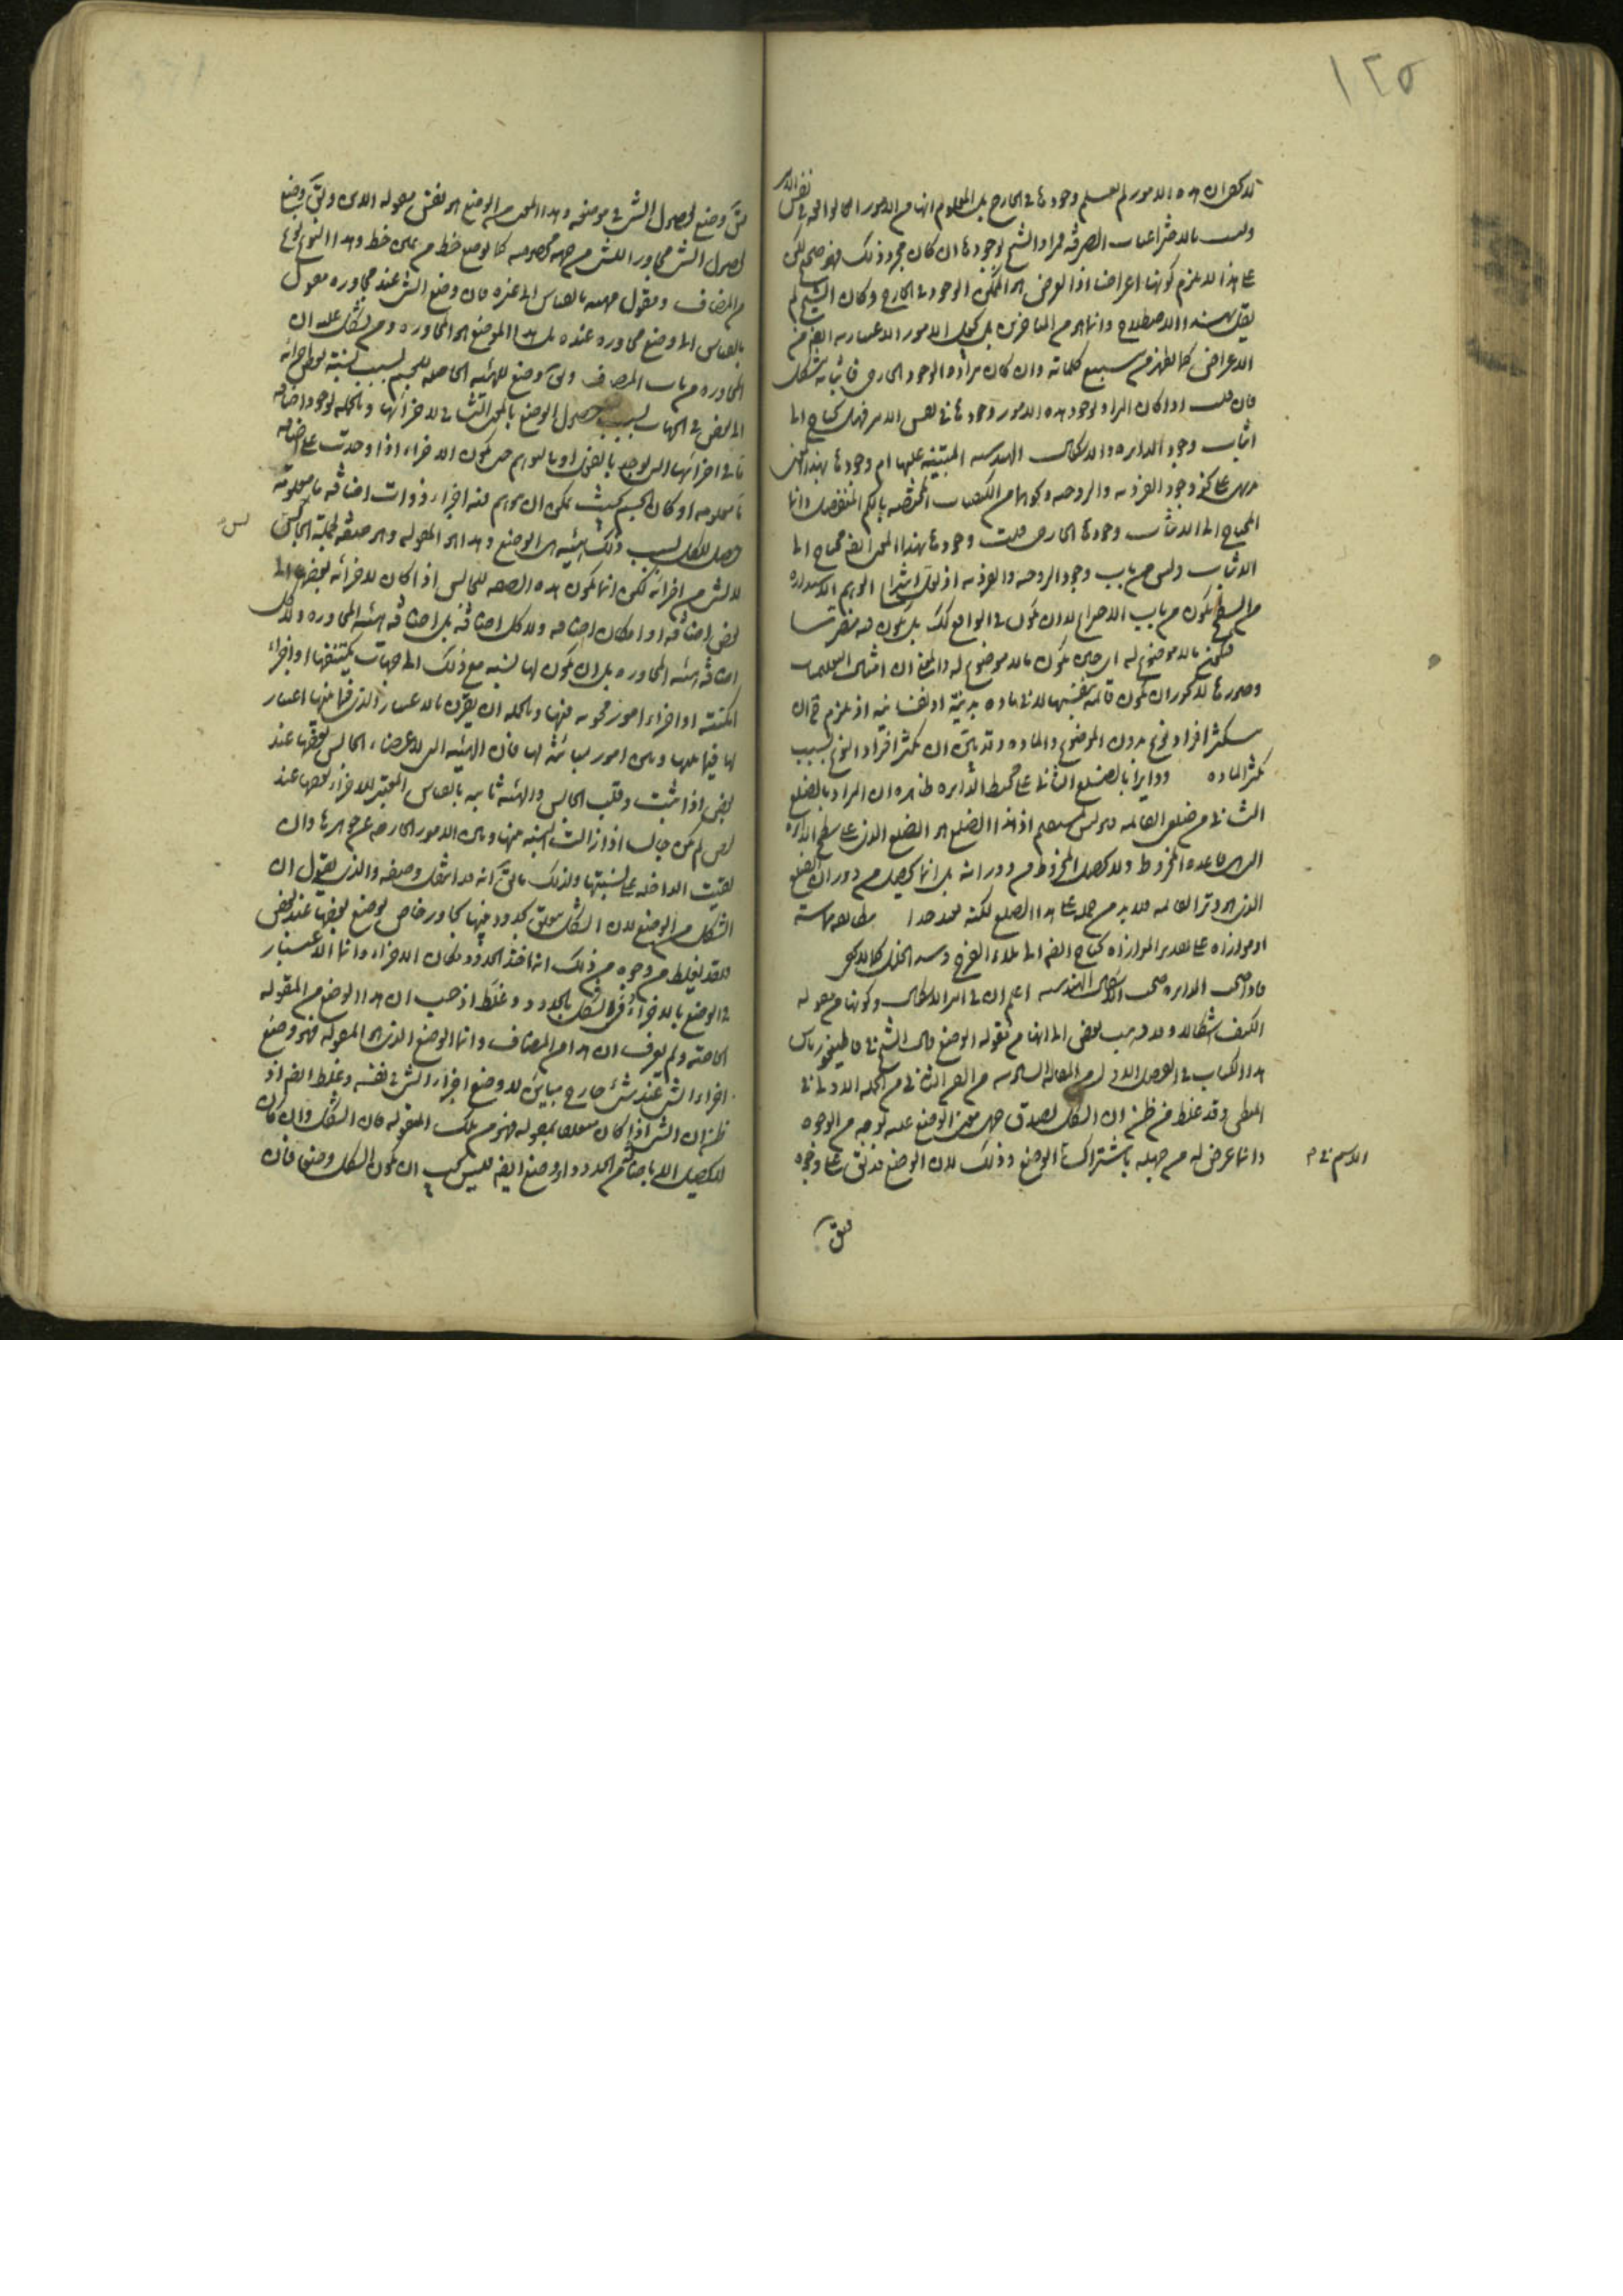 ١٢٥
لا يخفى ان هذه الامور لم يعلم وجودها في الخارج بل المعلوم انها من الامور الواقعة في نفس الامر
وليست بالاختراعيات الصرفة فمراد الشيخ بوجودها ان كان مجرد ذلك فهو صحيح لكن
على هذا لا يلزم كونها اعراضا اذ العرض هو الممكن الموجود في الخارج وكان الشيخ لم
يقل بهذا الاصطلاح وانما هو من المتاخرين بل يجعل الامور الاعتبارية ايضا من
الاعراض كما يظهر من تتبع كلماته وان كان مراده الوجود الخارجي فاثباته مشكل
فان قلت اذا كان المراد بوجود هذه الامور وجودها في نفس الامر فهل يحتاج الى
اثبات وجود الدائرة والاشكال الهندسية المبتنية عليها ام وجودها بهذا المعنى
بديهي على نحو وجود الفردية والزوجية وكونهما من الكيفيات المختصة بالكم المنفصل وانما
المحتاج الى الاثبات وجودها الخارجي قلت وجودها بهذا المعنى ايضا محتاج الى
الاثبات وليس من باب وجود الزوجية والفردية اذ لعل
من السطح يكون من باب الاختراع لا ان يكون في الواقع كذلك بل يكون فيه
فيكون بالموضوع له اي حتى يكون بالموضوع له والمعنى ان امثال التعليميات
وصورها لا يجوز ان يكون قائمة بنفسها لا في مادة بدنية او نفسانية اذ يلزم ان
يتكثر افراد نوع بدون الموضوع والمادة وقد بين ان تكثر افراد النوع بسبب
تكثر المادة ودائرا بالضلع الثاني على محيط الدائرة ظاهره ان المراد بالضلع
الثاني من ضلعي القائمة وليس بمستقيم اذ هذا الضلع هو الضلع الذي على سطح الدائرة
التي هي قاعدة المخروط ولا يحصل المخروط من دورانه بل انما يحصل من دوران الضلع
الذي هو وتر القائمة فلا بد من حمله على هذا الضلع لكنه بعيد جدا
او موازاة على تقدير الموازاة يحتاج ايضا الى ملاء الفرج وسد الخلل كما لا يخفى
فاذا صح الدائرة صح الاشكال الهندسية اعلم ان في امر الاشكال وكونها من مقولة
الكيف اشكالا وقد ذهب بعض الى انها من مقولة الوضع قال الشيخ في قاطيغورياس
هذا الكتاب في الفصل الاول من المقالة السادسة من الفن الثاني من الجملة الاولى في
المنطق وقد غلط من ظن ان الشكل لصدق
وانما عرض له من جهله باشتراك الوضع وذلك لان الوضع قد يقال على وجوه
الاسم في م
يقال
يقال وضع لحصول الشيء في موضعه وهذا المعنى من الوضع هو نفس مقولة الاين ويقال وضع
لحصول الشيء مجاورا للشيء من جهة مخصوصة كما يوضع خط من يمين خط وهذا النوع
من المضاف ومقول مهيته بالقياس الى غيره فان وضع الشيء عند مجاوره مقول
بالقياس الى وضع مجاوره عنده بل هذا الوضع هو المجاورة ومن يشكل عليه ان
المجاورة من باب المضاف ويقال وضع للهيئة الحاصلة للجسم بسبب نسبة بعض اجزائه
الى البعض في الجهات بسبب حصول الوضع بالمعنى الثاني لاجزائها وبالجملة لوجود اضافة
ما في اجزائها التي توجد بالفعل او بالتوهم حتى يكون الاجزاء اذا وجدت على اضافة
ما معلومة او كان الجسم بحيث يمكن ان يتوهم فيه اجزاء ذوات اضافة ما معلومة
حصل للكل بسبب ذلك هيئة هي الوضع وهذا هو المقولة وهو صفة لجملة الجالس
ليس
لا لشيء من اجزائه لكن انما يكون هذه الصفة للجالس اذا كان لاجزائه بعضها الى
بعض اضافة او امكان اضافة ولا كل اضافة بل اضافة هيئة المجاورة ولا كل
اضافة هيئة المجاورة بل ان يكون لها نسبة مع ذلك الى جهات يكتنفها او اجزاء
امكنة او اجزاء امور محوية فيها وبالجملة ان يقرن بالاعتبار الذي فيما بينها اعتبار
لها فيما يليها وبين امور مباينة لها فان الهيئة التي لاعضاء الجالس بعضها عند
بعض اذا ثبتت وقلب الجالس والهيئة ثابتة بالقياس المعتبر للاجزاء بعضها عند
بعض لم يكن جالسا اذا زالت النسبة بينها وبين الامور الخارجة عن جوهرها وان
بقيت الداخلة على نسبتها ولذلك ما يقال انه قد انتقل وضعه والذي يقول ان
الشكل من الوضع لان الشكل متعلق بحدود بينها تجاور خاص بوضع بعضها عند بعض
فلقد يغلط من وجوه من ذلك انه اخذ الحدود مكان الاجزاء وانما الاعتبار
في الوضع بالاجزاء وفي الشكل بالحدود وغلط اذ حسب ان هذا الوضع من المقولة
الخاصة ولم يعرف ان هذا من المضاف وانما الوضع الذي هو المقولة فهو وضع
اجزاء الشيء عند شيء خارج مباين لا وضع اجزاء الشيء في نفسه وغلط ايضا اذ
ظن ان الشيء اذا كان متعلقا بمقولة فهو من تلك المقولة فان الشكل وان كان
لا يحصل الا باضافة من الحدود او وضع ايضا فليس يجب ان يكون الشكل وضعا فان